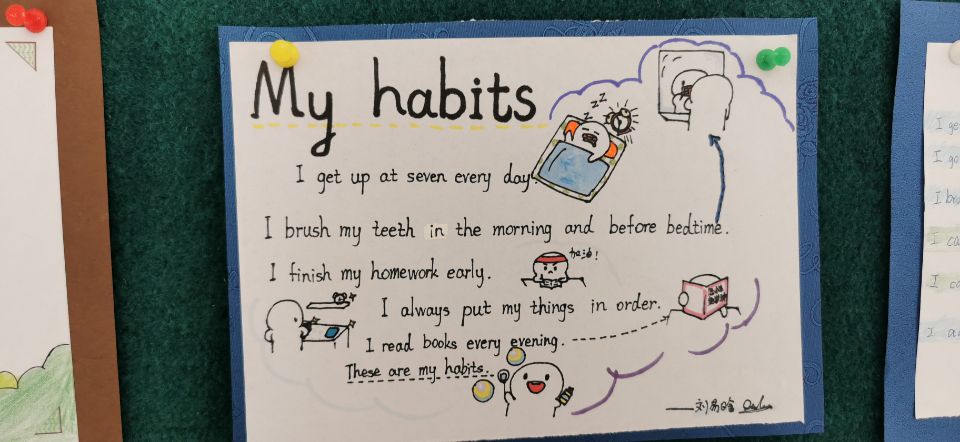 My habits
zzz
I get up at seven every day.
I brush my teeth in the morning and before bedtime.
I finish my homework early.
加油!
I always put my things in order.
I read books every evening.
These are my habits.
I
I
I
I ca
I
I